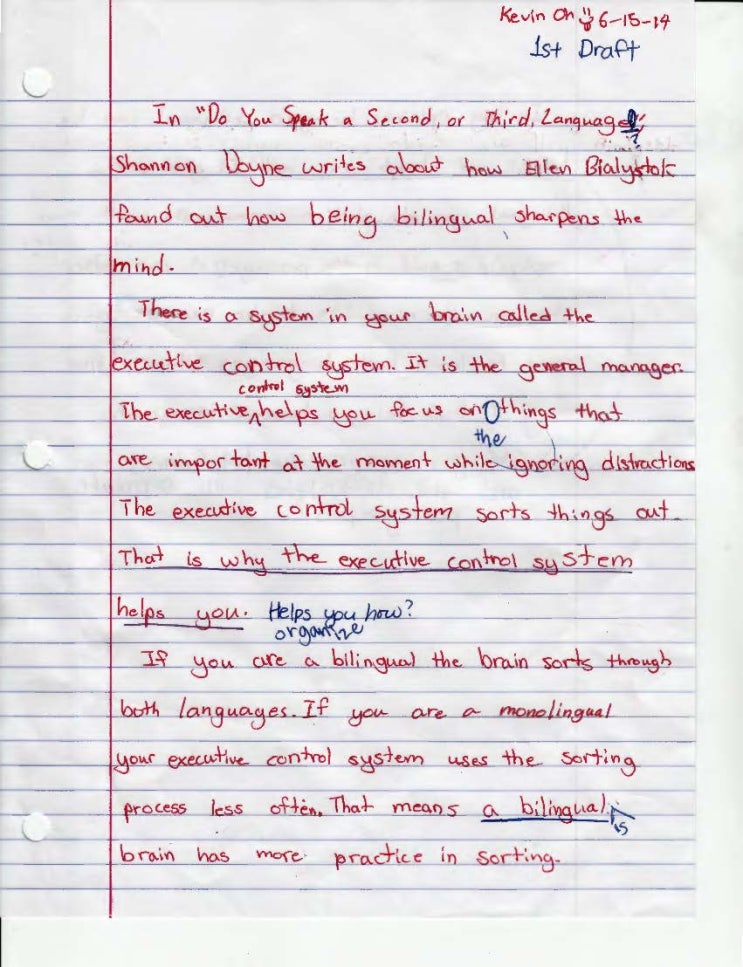 Kevin Oh 6-15-14
1st Draft
In "Do You Speak a Second, or Third, Language?"
Shannon Doyne writes about how Ellen Bialystok
found out how being bilingual sharpens the
mind.
There is a system in your brain called the
executive control system. It is the general manager.
control system
The executive helps you focus on things that
the
are important at the moment while ignoring distractions
The executive control system sorts things out.
That is why the executive control system
helps you. Helps you how?
organize
If you are a bilingual the brain sorts through
both languages. If you are a monolingual
your executive control system uses the sorting
process less often. That means a bilingual
is
brain has more practice in sorting.